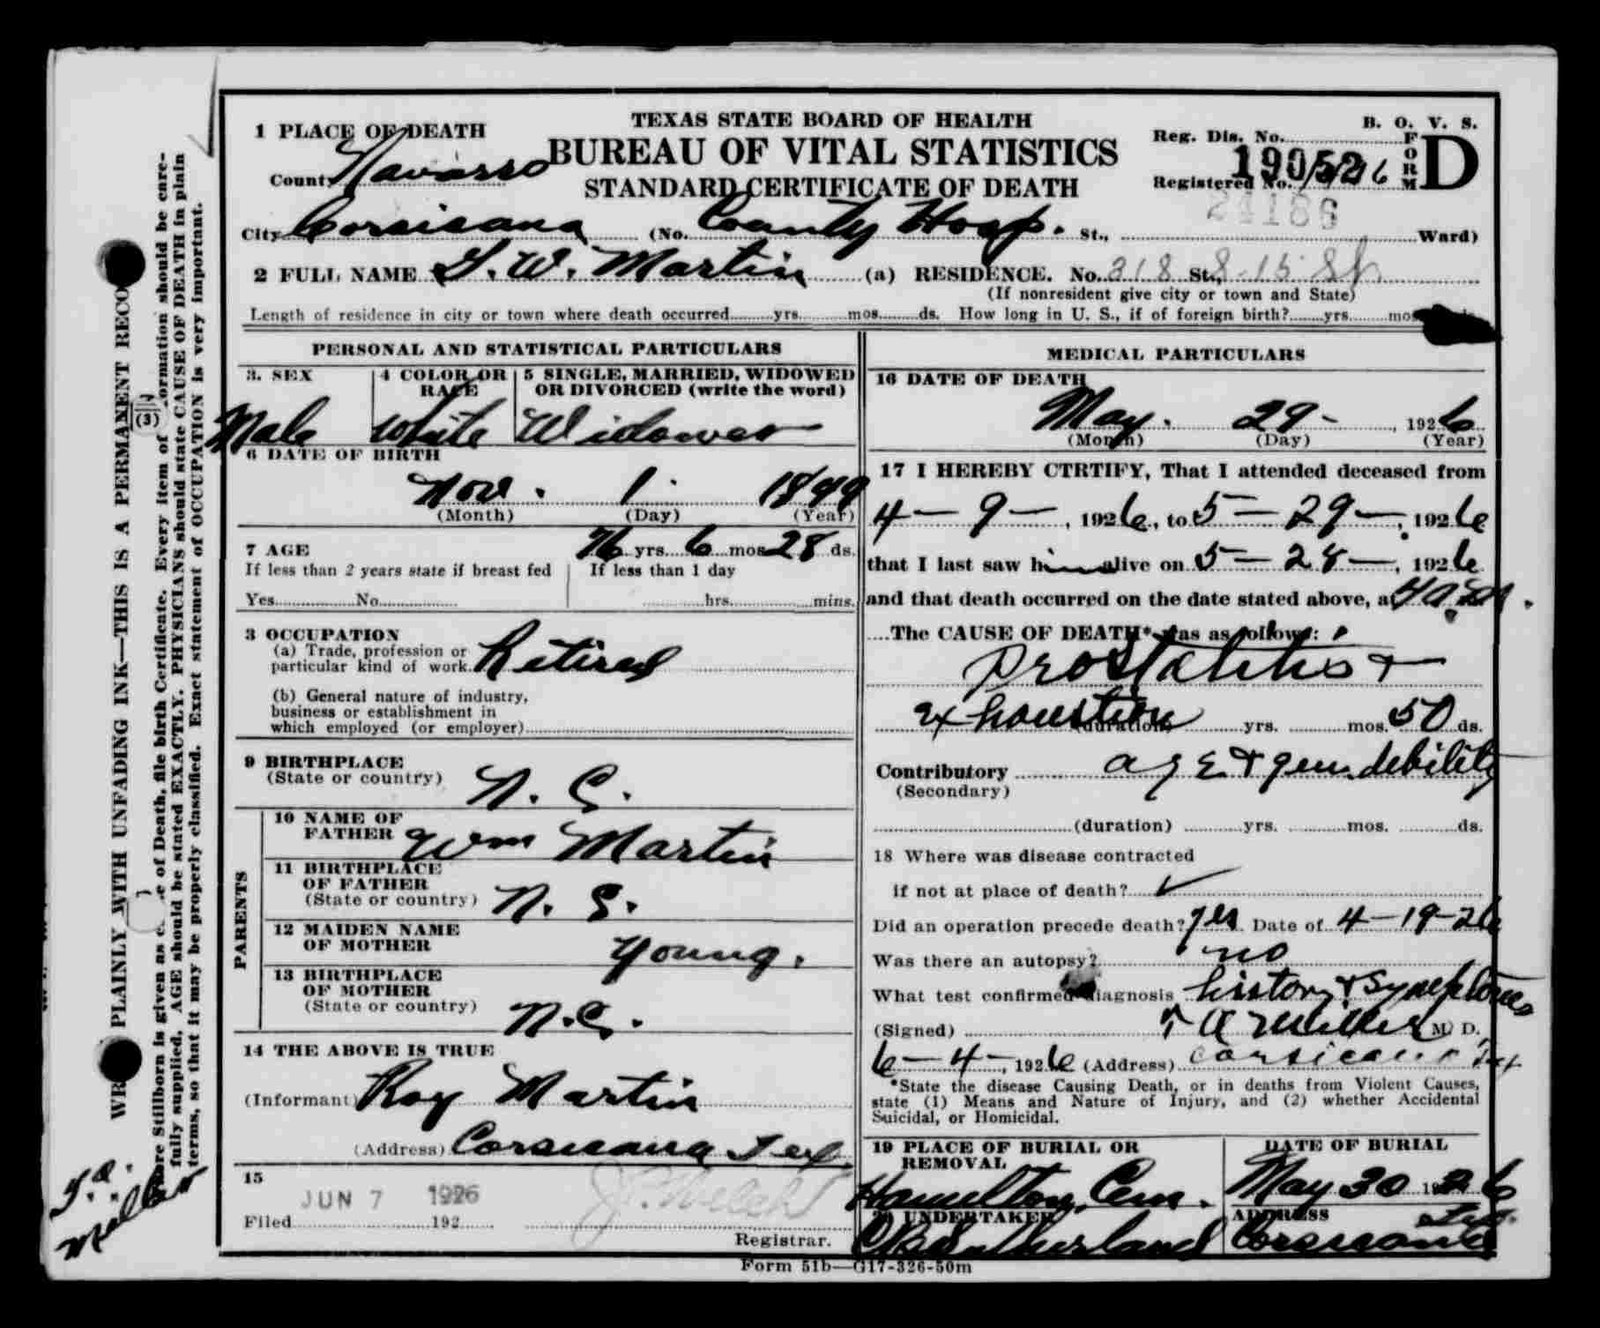 TEXAS STATE BOARD OF HEALTH
BUREAU OF VITAL STATISTICS
STANDARD CERTIFICATE OF DEATH
B. O. V. S.
FORM D
Reg. Dis. No.
Registered No.
1 PLACE OF DEATH
County Navarro
City Corsicana (No. County Hosp. St., Ward)
2 FULL NAME W. Martin (a) RESIDENCE. No. 318 St. S. 15 St
(If nonresident give city or town and State)
Length of residence in city or town where death occurred yrs. mos. ds. How long in U. S., if of foreign birth? yrs. mos
PERSONAL AND STATISTICAL PARTICULARS
3. SEX 4 COLOR OR RACE 5 SINGLE, MARRIED, WIDOWED OR DIVORCED (write the word)
Male White Widower
6 DATE OF BIRTH
Nov. 1. 1849
(Month) (Day) (Year)
7 AGE 76 yrs. 6 mos 28 ds.
If less than 2 years state if breast fed If less than 1 day
Yes No hrs. mins.
8 OCCUPATION
(a) Trade, profession or
particular kind of work Retired
(b) General nature of industry,
business or establishment in
which employed (or employer)
9 BIRTHPLACE
(State or country) N. C.
PARENTS
10 NAME OF
FATHER Wm Martin
11 BIRTHPLACE
OF FATHER
(State or country) N. C.
12 MAIDEN NAME
OF MOTHER Young.
13 BIRTHPLACE
OF MOTHER
(State or country) N.C.
14 THE ABOVE IS TRUE
(Informant) Roy Martin
(Address) Corsicana Tex.
15
JUN 7 1926
Filed 192
Registrar.
MEDICAL PARTICULARS
16 DATE OF DEATH
May. 29 - , 1926
(Month) (Day) (Year)
17 I HEREBY CTRTIFY, That I attended deceased from
4 - 9 - , 1926, to 5 - 29 - , 1926
that I last saw him alive on 5 - 28 - , 1926
and that death occurred on the date stated above, at
The CAUSE OF DEATH* was as follows:
Prostatitis +
exhaustion (duration) yrs. mos. 50 ds.
Contributory age & gen. debility
(Secondary)
(duration) yrs. mos. ds.
18 Where was disease contracted
if not at place of death? ✓
Did an operation precede death? yes Date of 4-19-26
Was there an autopsy? no
What test confirmed diagnosis history & symptoms
(Signed) Miller M. D.
6 - 4 - , 1926 (Address) Corsicana Tex
*State the disease Causing Death, or in deaths from Violent Causes,
state (1) Means and Nature of Injury, and (2) whether Accidental
Suicidal, or Homicidal.
19 PLACE OF BURIAL OR REMOVAL DATE OF BURIAL
Hamilton Cem. May 30 1926
UNDERTAKER ADDRESS
Sutherland Corsicana Tex.
Form 51b—G17-326-50m
PLAINLY WITH UNFADING INK—THIS IS A PERMANENT RECO
of Death, file birth Certificate. Every item of ormation should be care-
fully supplied. AGE should be stated EXACTLY. PHYSICIANS should state CAUSE OF DEATH in plain
terms, so that it may be properly classified. Exact statement of OCCUPATION is very important.